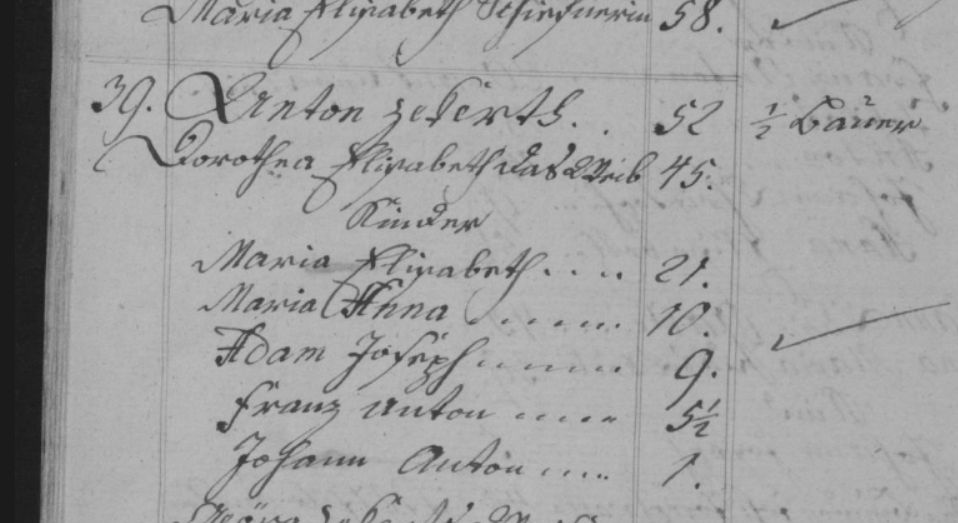 Maria Elisabeth Schiefnerin 58.
39. Anton Zekerth. . 52 ½ Bauer
Dorothea Elisabeth das Weib 45.
Kinder
Maria Elisabeth . . . . 21.
Maria Anna . . . . . . 10.
Adam Joseph . . . . . . 9.
Franz Anton . . . . . 5½
Johann Anton . . . . . 1.